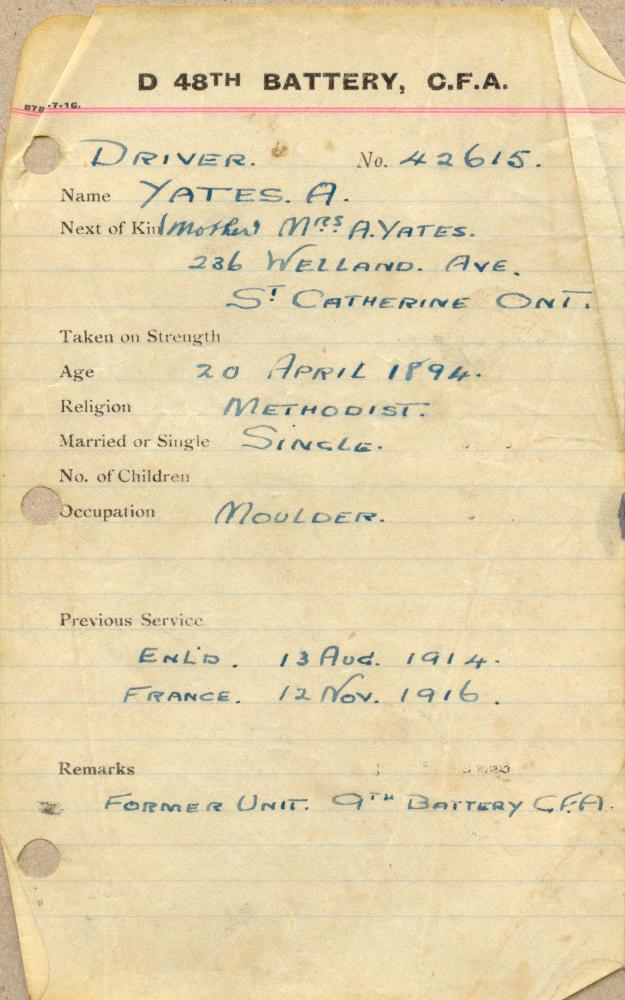 D 48TH BATTERY, C.F.A.
B79-7-16.
DRIVER. No. 42615.
Name YATES. A.
Next of Kin (Mother) MRS A. YATES.
236 WELLAND. AVE.
ST CATHERINE ONT.
Taken on Strength
Age 20 APRIL 1894.
Religion METHODIST.
Married or Single SINGLE.
No. of Children
Occupation MOULDER.
Previous Service
ENL'D. 13 AUG. 1914.
FRANCE. 12 NOV. 1916.
Remarks
FORMER UNIT. 9TH BATTERY C.F.A.